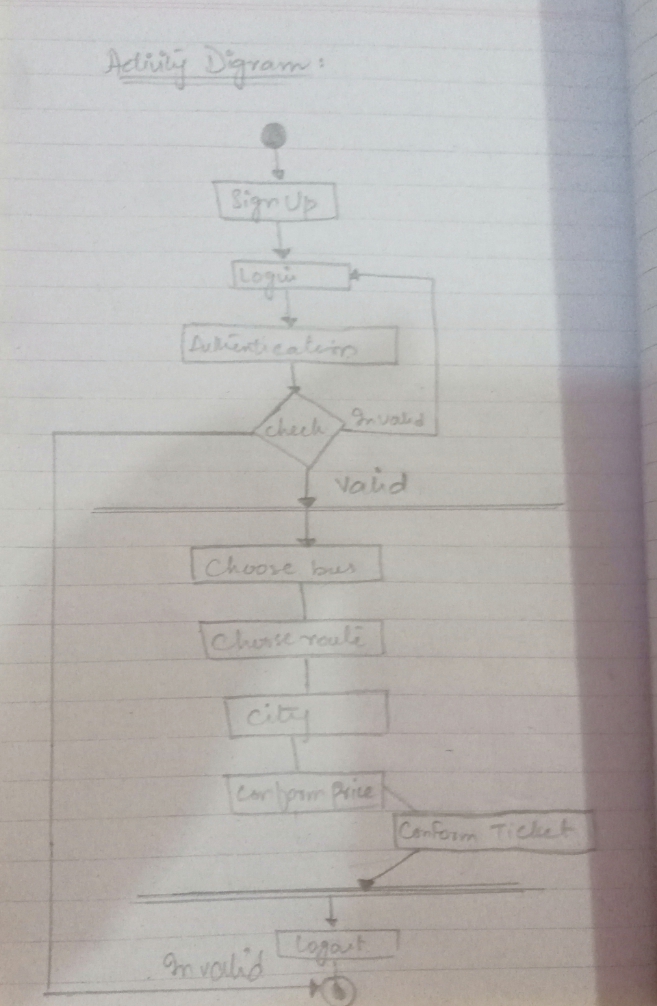 Activity Digram:
Sign Up
Login
Authentication
check
Invalid
Valid
Choose bus
Choose route
City
Conform Price
Conform Ticket
Logout
Invalid